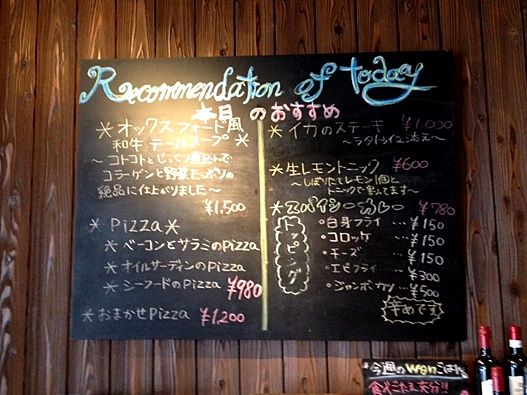 Recommendation of today
本日のおすすめ
＊オックスフォード風
和牛テールスープ＊
～コトコトとじっくり煮込んで
コラーゲンと野菜たっぷりの
絶品に仕上がりました～
¥1,500
＊Pizza＊
＊ベーコンとサラミのPizza
＊オイルサーディンのPizza
＊シーフードのPizza ¥980
＊おまかせPizza ¥1,200
＊イカのステーキ ¥1,000
～ラタトゥイユ添え～
＊生レモントニック ¥600
～しぼりたてレモン1個と
トニックで割ってます～
＊スパイシーカレー ¥780
トッピング
・白身フライ…¥150
・コロッケ…¥150
・チーズ…¥150
・エビフライ…¥300
・ジャンボカツ…¥500
辛めです
今週のwanごはん
食べごたえ充分!!